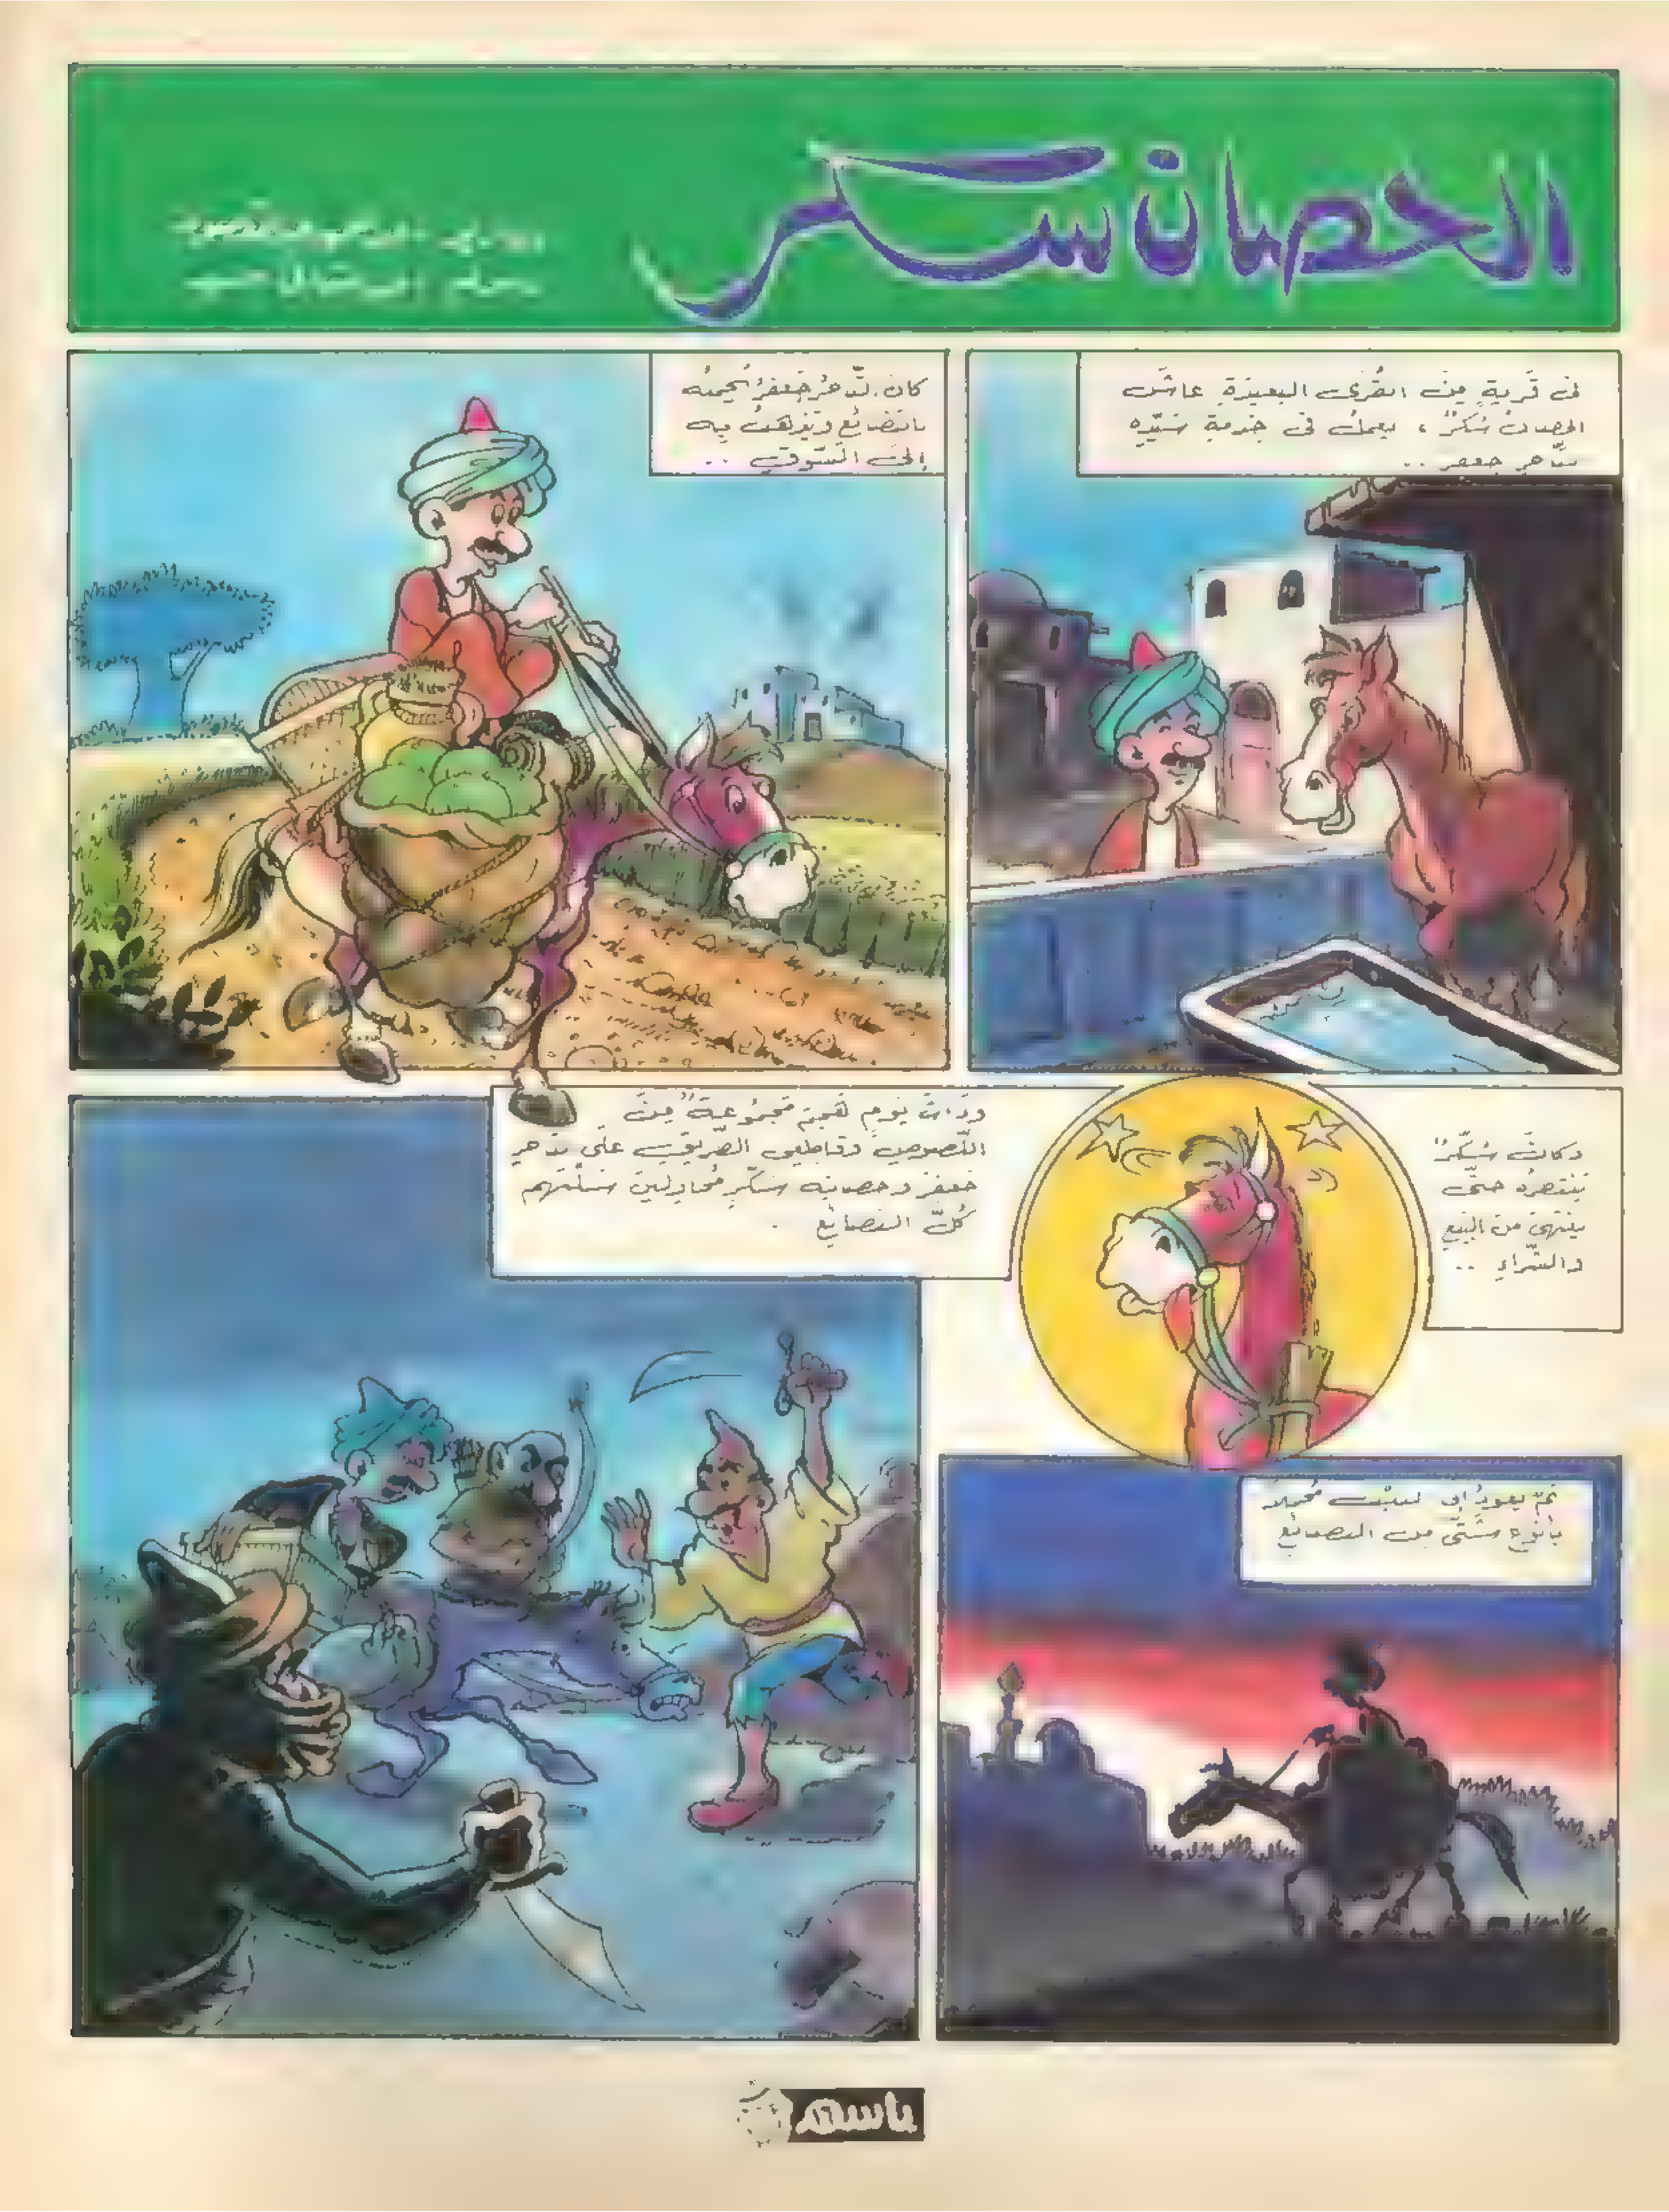 الحصان سكر
في قَريةٍ مِنَ القُرَى البعيدَةِ عاشَ
الحصانُ سُكّرٌ، يعملُ في خِدمةِ سَيّدِهِ
التّاجرِ جعفر ..
كانَ التّاجرُ جَعفرُ يُحمِّلُه
بالبَضائعِ ويَذهبُ بِه
إلى السّوقِ ..
وكانَ سُكّرٌ
يَنتظِرُه حتّى
ينتهيَ منَ البَيْعِ
والشّراءِ ..
ثمّ يعودُ إلى البيْت مُحمّلاً
بأنواعٍ شَتّى من البضائع
وذاتَ يَومٍ هَجمَ مَجموعَةٌ مِنَ
اللّصوصِ وقاطعِي الطّريقِ على التاجرِ
جَعفر وحصانِه سكّر مُحاولينَ سَلبَهم
كُلّ البَضائعِ .
باسم